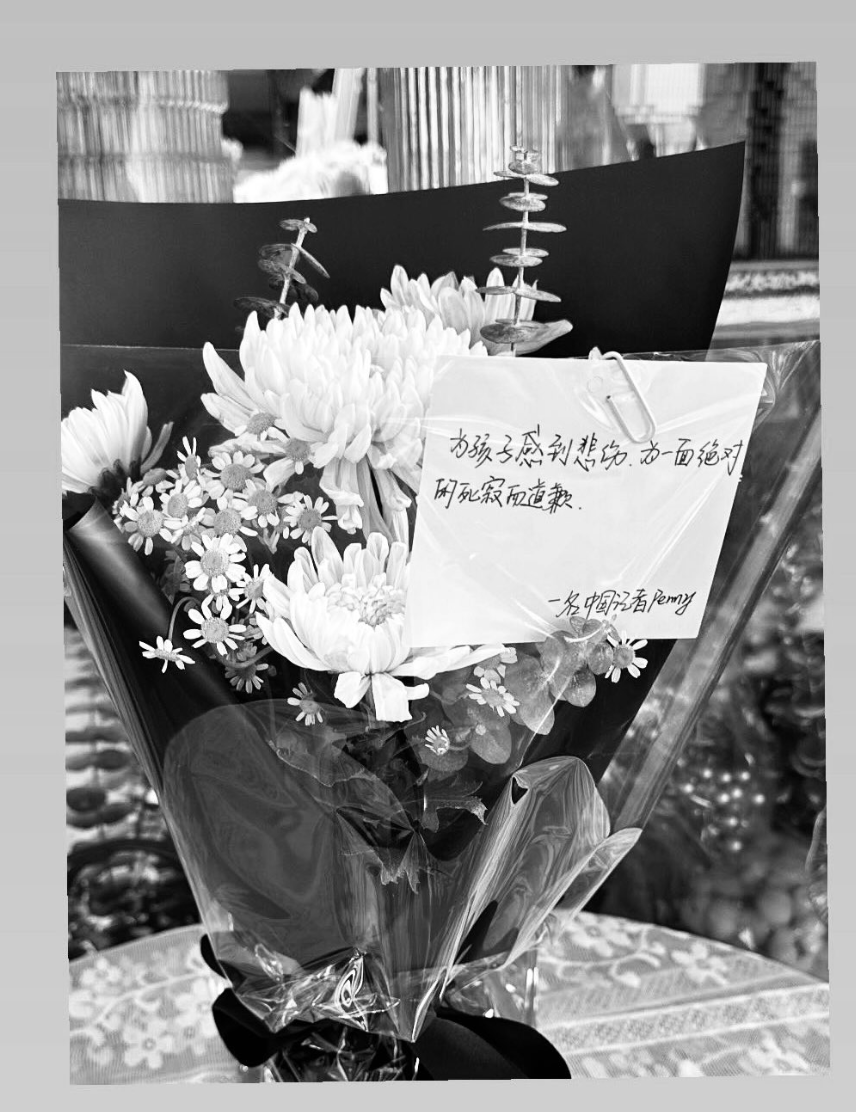 为孩子感到悲伤.为一面绝对
的死寂而道歉.
一名中国记者Penny